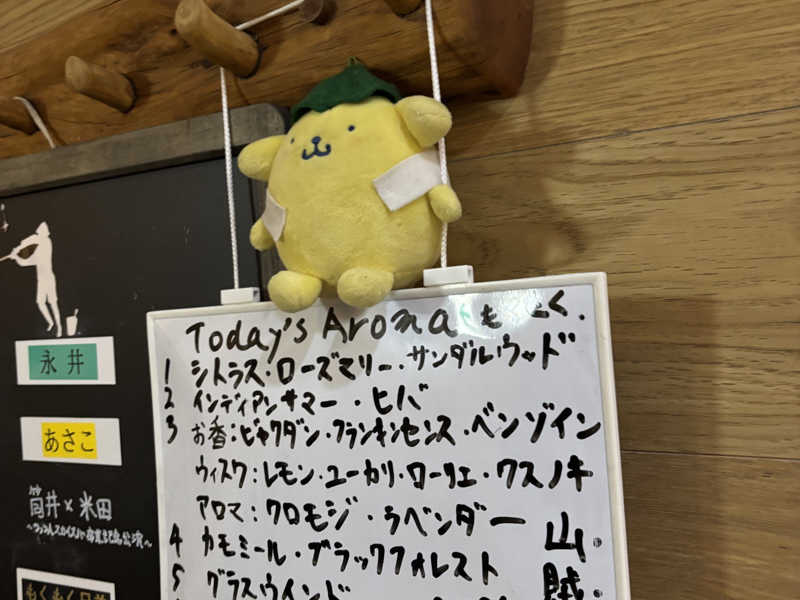 Today's Aroma もとく.
1 シトラス・ローズマリー・サンダルウッド
2 インディアンサマー・ヒバ
3 お香:ビャクダン・フランキンセンス・ベンゾイン
ウィスク:レモン・ユーカリ・ローリエ・クスノキ
アロマ:クロモジ・ラベンダー
4 カモミール・ブラックフォレスト
5 グラスウインド
山.
賊.
永井
あさこ
筒井×米田